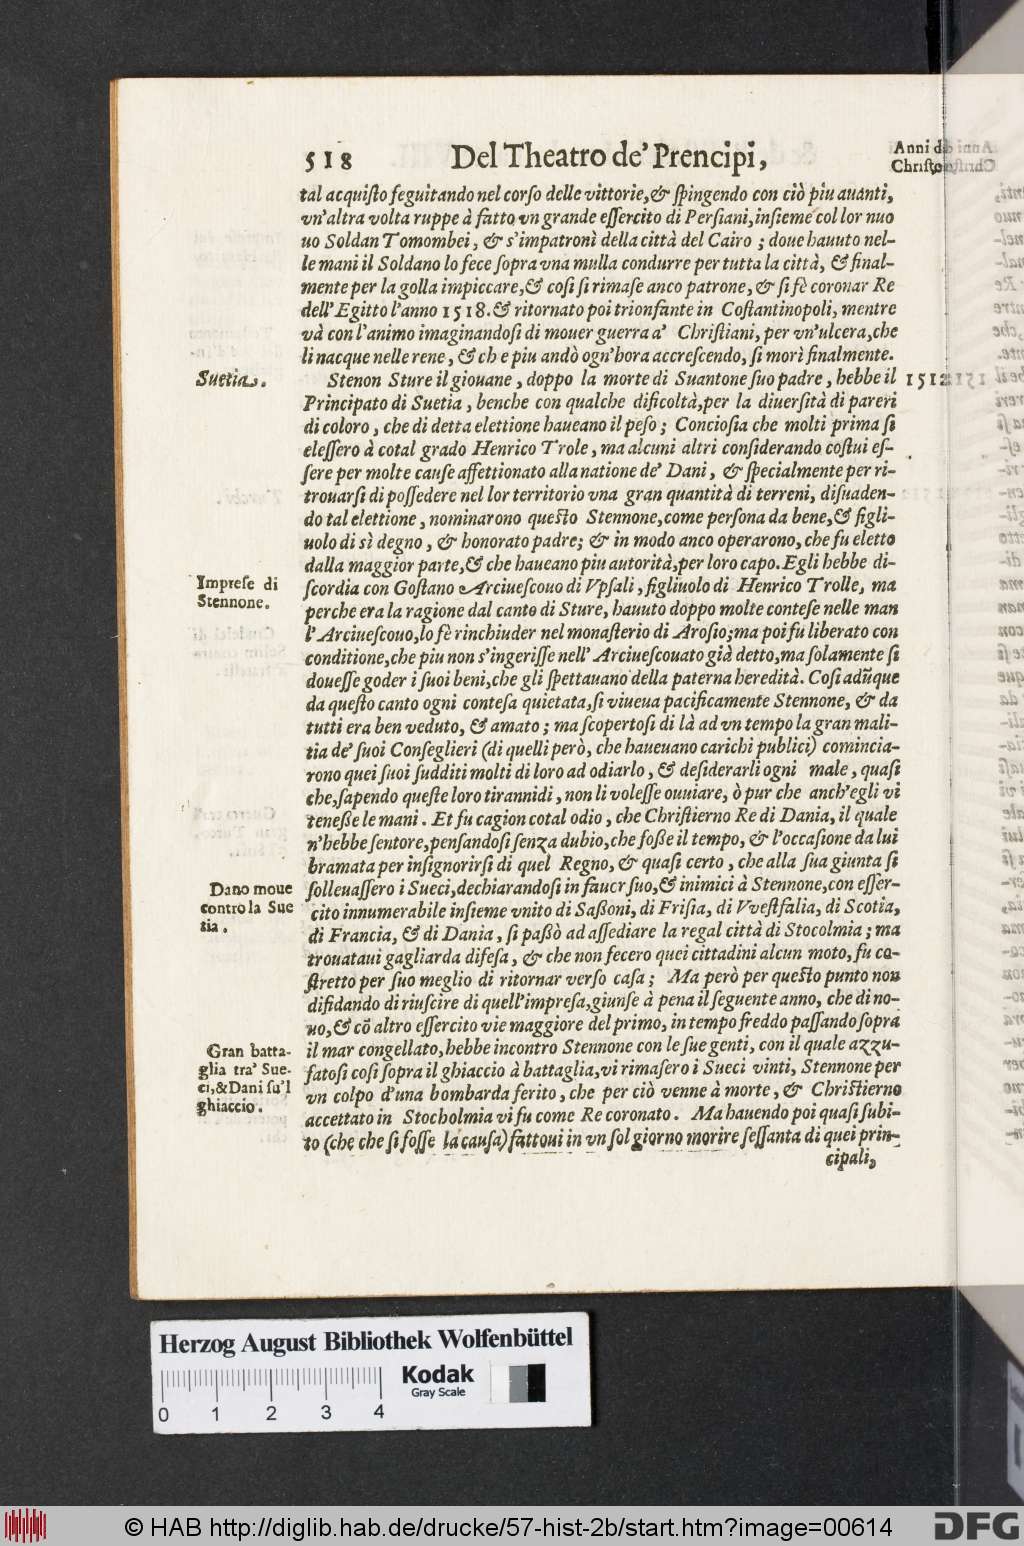 518 Del Theatro de' Prencipi,
Anni di
Christo
tal acquiſto ſeguitando nel corſo delle vittorie,& ſpingendo con ciò piu auanti,
vn'altra volta ruppe à fatto vn grande eſſercito di Perſiani,inſieme col lor nuo
uo Soldan Tomombei, & s'impatronì della città del Cairo ; doue hauuto nel-
le mani il Soldano lo fece ſopra vna mulla condurre per tutta la città, & final-
mente per la golla impiccare,& coſi ſi rimaſe anco patrone, & ſi fè coronar Re
dell'Egitto l'anno 1518.& ritornato poi trionfante in Coſtantinopoli, mentre
và con l'animo imaginandoſi di mouer guerra a' Chriſtiani, per vn'ulcera,che
li nacque nelle rene, & ch e piu andò ogn'hora accreſcendo, ſi morì finalmente.
Suetia.
Stenon Sture il giouane, doppo la morte di Suantone ſuo padre, hebbe il 1512
Principato di Suetia, benche con qualche dificoltà,per la diuerſità di pareri
di coloro, che di detta elettione haueano il peſo; Concioſia che molti prima ſi
eleſſero à cotal grado Henrico Trole, ma alcuni altri conſiderando coſtui eſ-
ſere per molte cauſe affettionato alla natione de' Dani, & ſpecialmente per ri-
trouarſi di poſſedere nel lor territorio vna gran quantità di terreni, diſuaden-
do tal elettione, nominarono queſto Stennone,come perſona da bene,& figli-
uolo di sì degno, & honorato padre; & in modo anco operarono, che fu eletto
dalla maggior parte,& che haueano piu autorità,per loro capo. Egli hebbe di-
Impreſe di
Stennone.
ſcordia con Goſtano Arciueſcouo di Vpſali, figliuolo di Henrico Trolle, ma
perche era la ragione dal canto di Sture, hauuto doppo molte conteſe nelle man
l'Arciueſcouo,lo fè rinchiuder nel monaſterio di Aroſio;ma poi fu liberato con
conditione,che piu non s'ingeriſſe nell'Arciueſcouato già detto,ma ſolamente ſi
doueſſe goder i ſuoi beni,che gli ſpettauano della paterna heredità. Coſi adũque
da queſto canto ogni conteſa quietata,ſi viueua pacificamente Stennone, & da
tutti era ben veduto, & amato; ma ſcopertoſi di là ad vn tempo la gran mali-
tia de' ſuoi Conſeglieri (di quelli però, che haueuano carichi publici) comincia-
rono quei ſuoi ſudditi molti di loro ad odiarlo, & deſiderarli ogni male, quaſi
che,ſapendo queſte loro tirannidi, non li voleſſe ouuiare, ò pur che anch'egli vi
teneße le mani. Et fu cagion cotal odio, che Chriſtierno Re di Dania, il quale
n'hebbe ſentore,penſandoſi ſenza dubio,che foße il tempo, & l'occaſione da lui
bramata per inſignorirſi di quel Regno, & quaſi certo, che alla ſua giunta ſi
Dano moue
contro la Sue
tia.
ſolleuaſſero i Sueci,dechiarandoſi in fauor ſuo,& inimici à Stennone,con eſſer-
cito innumerabile inſieme vnito di Saßoni, di Friſia, di Vveſtfalia, di Scotia,
di Francia, & di Dania, ſi paßò ad aſſediare la regal città di Stocolmia; ma
trouataui gagliarda difeſa, & che non fecero quei cittadini alcun moto, fu co-
ſtretto per ſuo meglio di ritornar verſo caſa; Ma però per queſto punto non
difidando di riuſcire di quell'impreſa,giunſe à pena il ſeguente anno, che di no-
uo,& cõ altro eſſercito vie maggiore del primo, in tempo freddo paſſando ſopra
Gran batta-
glia tra' Sue-
ci,& Dani ſu'l
ghiaccio.
il mar congellato,hebbe incontro Stennone con le ſue genti, con il quale azzu-
fatoſi coſi ſopra il ghiaccio à battaglia,vi rimaſero i Sueci vinti, Stennone per
vn colpo d'una bombarda ferito, che per ciò venne à morte, & Chriſtierno
accettato in Stocholmia vi fu come Re coronato. Ma hauendo poi quaſi ſubi-
to (che che ſi foſſe la cauſa) fattoui in vn ſol giorno morire ſeſſanta di quei prin-
cipali,
Herzog August Bibliothek Wolfenbüttel
Kodak
Gray Scale
0 1 2 3 4
© HAB http://diglib.hab.de/drucke/57-hist-2b/start.htm?image=00614
DFG